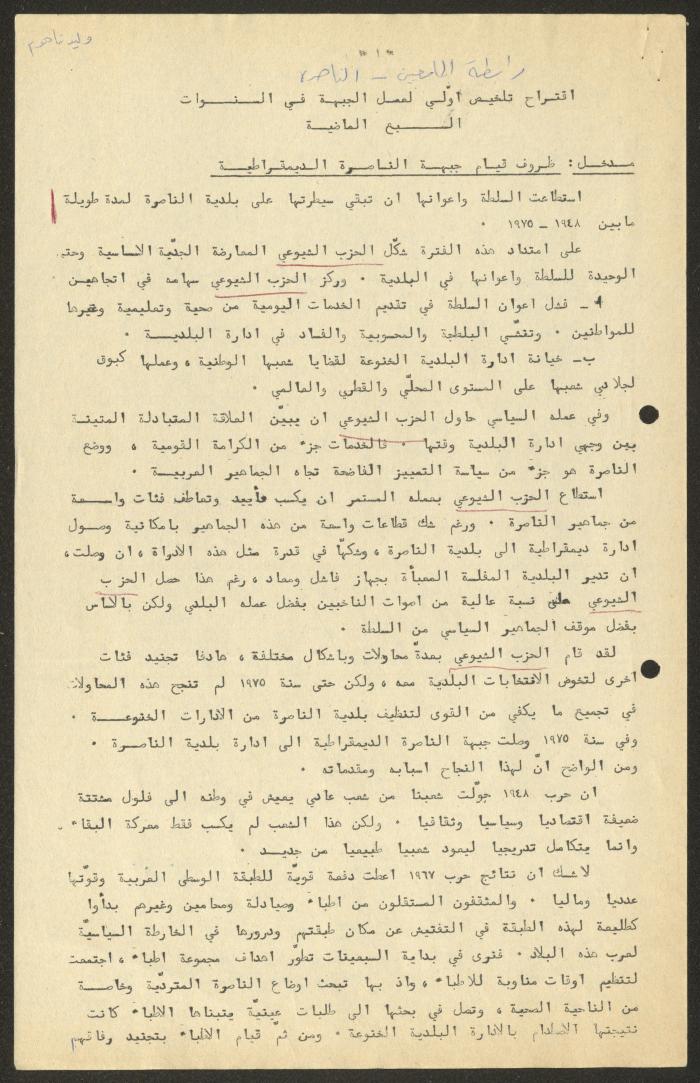 وليد ناهوم
* ١ *
رابطة الجامعيين - الناصرة
اقتراح تلخيص اوّلي لعمل الجبهة في السنوات
السبع الماضية
مدخل : ظروف قيام جبهة الناصرة الديمقراطية
استطاعت السلطة واعوانها ان تبقي سيطرتها على بلدية الناصرة لمدة طويلة
مابين ١٩٤٨ - ١٩٧٥ ٠
على امتداد هذه الفترة شكّل الحزب الشيوعي المعارضة الجدّية الاساسية وحتى
الوحيدة للسلطة واعوانها في البلدية ٠ وركز الحزب الشيوعي سهامه في اتجاهين
أ - فشل اعوان السلطة في تقديم الخدمات اليومية من صحية وتعليمية وغيرها
للمواطنين ٠ وتفشّي البلطجة والمحسوبية والفساد في ادارة البلدية ٠
ب - خيانة ادارة البلدية الخنوعة لقضايا شعبها الوطنية ، وعملها كبوق
لجلادي شعبها على المستوى المحلّي والقطري والعالمي ٠
وفي عمله السياسي حاول الحزب الشيوعي ان يبيّن العلاقة المتبادلة المتينة
بين وجهي ادارة البلدية وقتها ٠ فالخدمات جزء من الكرامة القومية ، ووضع
الناصرة هو جزء من سياسة التمييز الفاضحة تجاه الجماهير العربية ٠
استطاع الحزب الشيوعي بعمله المستمر ان يكسب تأييد وتعاطف فئات واسعة
من جماهير الناصرة ٠ ورغم شك قطاعات واسعة من هذه الجماهير بامكانية وصول
ادارة ديمقراطية الى بلدية الناصرة ، وشكّها في قدرة مثل هذه الادراة ، ان وصلت ،
ان تدير البلدية المفلسة المعبأة بجهاز فاشل ومعاد ، رغم هذا حصل الحزب
الشيوعي على نسبة عالية من اصوات الناخبين بفضل عمله البلدي ولكن بالاساس
بفضل موقف الجماهير السياسي من السلطة ٠
لقد قام الحزب الشيوعي بعدة محاولات وباشكال مختلفة ، هادفا تجنيد فئات
اخرى لتخوض الانتخابات البلدية معه ، ولكن حتى سنة ١٩٧٥ لم تنجح هذه المحاولات
في تجميع ما يكفي من القوى لتنظيف بلدية الناصرة من الادارات الخنوعة ٠
وفي سنة ١٩٧٥ وصلت جبهة الناصرة الديمقراطية الى ادارة بلدية الناصرة ٠
ومن الواضح انّ لهذا النجاح اسبابه ومقدماته ٠
ان حرب ١٩٤٨ حوّلت شعبنا من شعب عادي يعيش في وطنه الى فلول مشتتة
ضعيفة اقتصاديا وسياسيا وثقافيا ٠ ولكن هذا الشعب لم يكسب فقط معركة البقاء ،
وانما يتكامل تدريجيا ليعود شعبيا طبيعيا من جديد ٠
لاشك ان نتائج حرب ١٩٦٧ اعطت دفعة قويّة للطبقة الوسطى العربية وقوّتها
عدديا وماليا ٠ والمثقفون المستقلون من اطباء وصيادلة ومحامين وغيرهم بدأوا
كطليعة لهذه الطبقة في التفتيش عن مكان طبقتهم ودورها في الخارطة السياسيّة
لعرب هذه البلاد ٠ فنرى في بداية السبعينات تطوّر اهداف مجموعة اطباء ، اجتمعت
لتنظيم اوقات مناوبة للاطباء ، واذ بها تبحث اوضاع الناصرة المتردّية وخاصة
من الناحية الصحية ، وتصل في بحثها الى طلبات عينيّة يتبناها الاطباء كانت
نتيجتها الاصطدام بالادارة البلدية الخنوعة ٠ ومن ثمّ قيام الاطباء بتجنيد رفاقهم